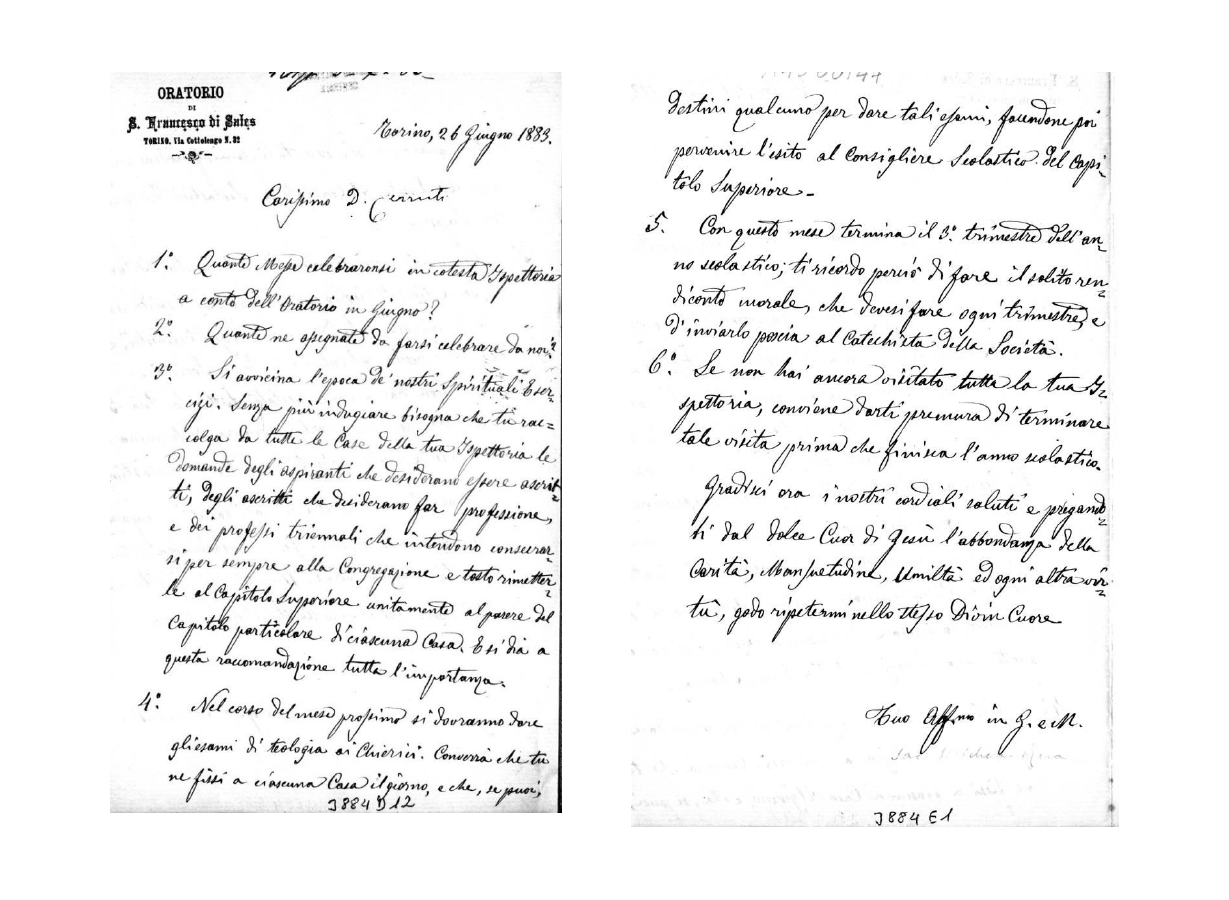 ORATORIO
DI
S. Francesco di Sales
TORINO, Via Cottolengo N. 32
Torino, 26 Giugno 1883.
Carissimo D. Cerruti
1.° Quante Messe celebraronsi in cotesta Ispettoria
a conto dell'Oratorio in Giugno?
2.° Quante ne assegnate da farsi celebrare da noi?
3.° Si avvicina l'epoca de' nostri Spirituali Eser=
cizi. Senza più indugiare bisogna che tu rac=
colga da tutte le Case della tua Ispettoria le
domande degli aspiranti che desiderano essere ascrit=
ti, degli ascritti che desiderano far professione,
e dei professi triennali che intendono consecrar=
si per sempre alla Congregazione e tosto rimetter=
le al Capitolo Superiore unitamente al parere del
Capitolo particolare di ciascuna Casa. E si dia a
questa raccomandazione tutta l'importanza.
4.° Nel corso del mese prossimo si dovranno dare
gli esami di teologia ai Chierici. Converrà che tu
ne fissi a ciascuna Casa il giorno, e che, se puoi,
J884 D12
destini qualcuno per dare tali esami, facendone poi
pervenire l'esito al Consigliere Scolastico del Capi=
tolo Superiore -
5. Con questo mese termina il 3.° trimestre dell'an=
no scolastico; ti ricordo perciò di fare il solito ren=
diconto morale, che devesi fare ogni trimestre, e
d'inviarlo poscia al Catechista della Società.
6.° Se non hai ancora visitato tutta la tua I=
spettoria, conviene darti premura di terminare
tale visita prima che finisca l'anno scolastico.
Gradisci ora i nostri cordiali saluti e pregando=
ti dal dolce Cuor di Gesù l'abbondanza della
Carità, Mansuetudine, Umiltà ed ogni altra vir=
tù, godo ripetermi nello stesso Divin Cuore
Tuo Aff.mo in G. e M.
J884 E1